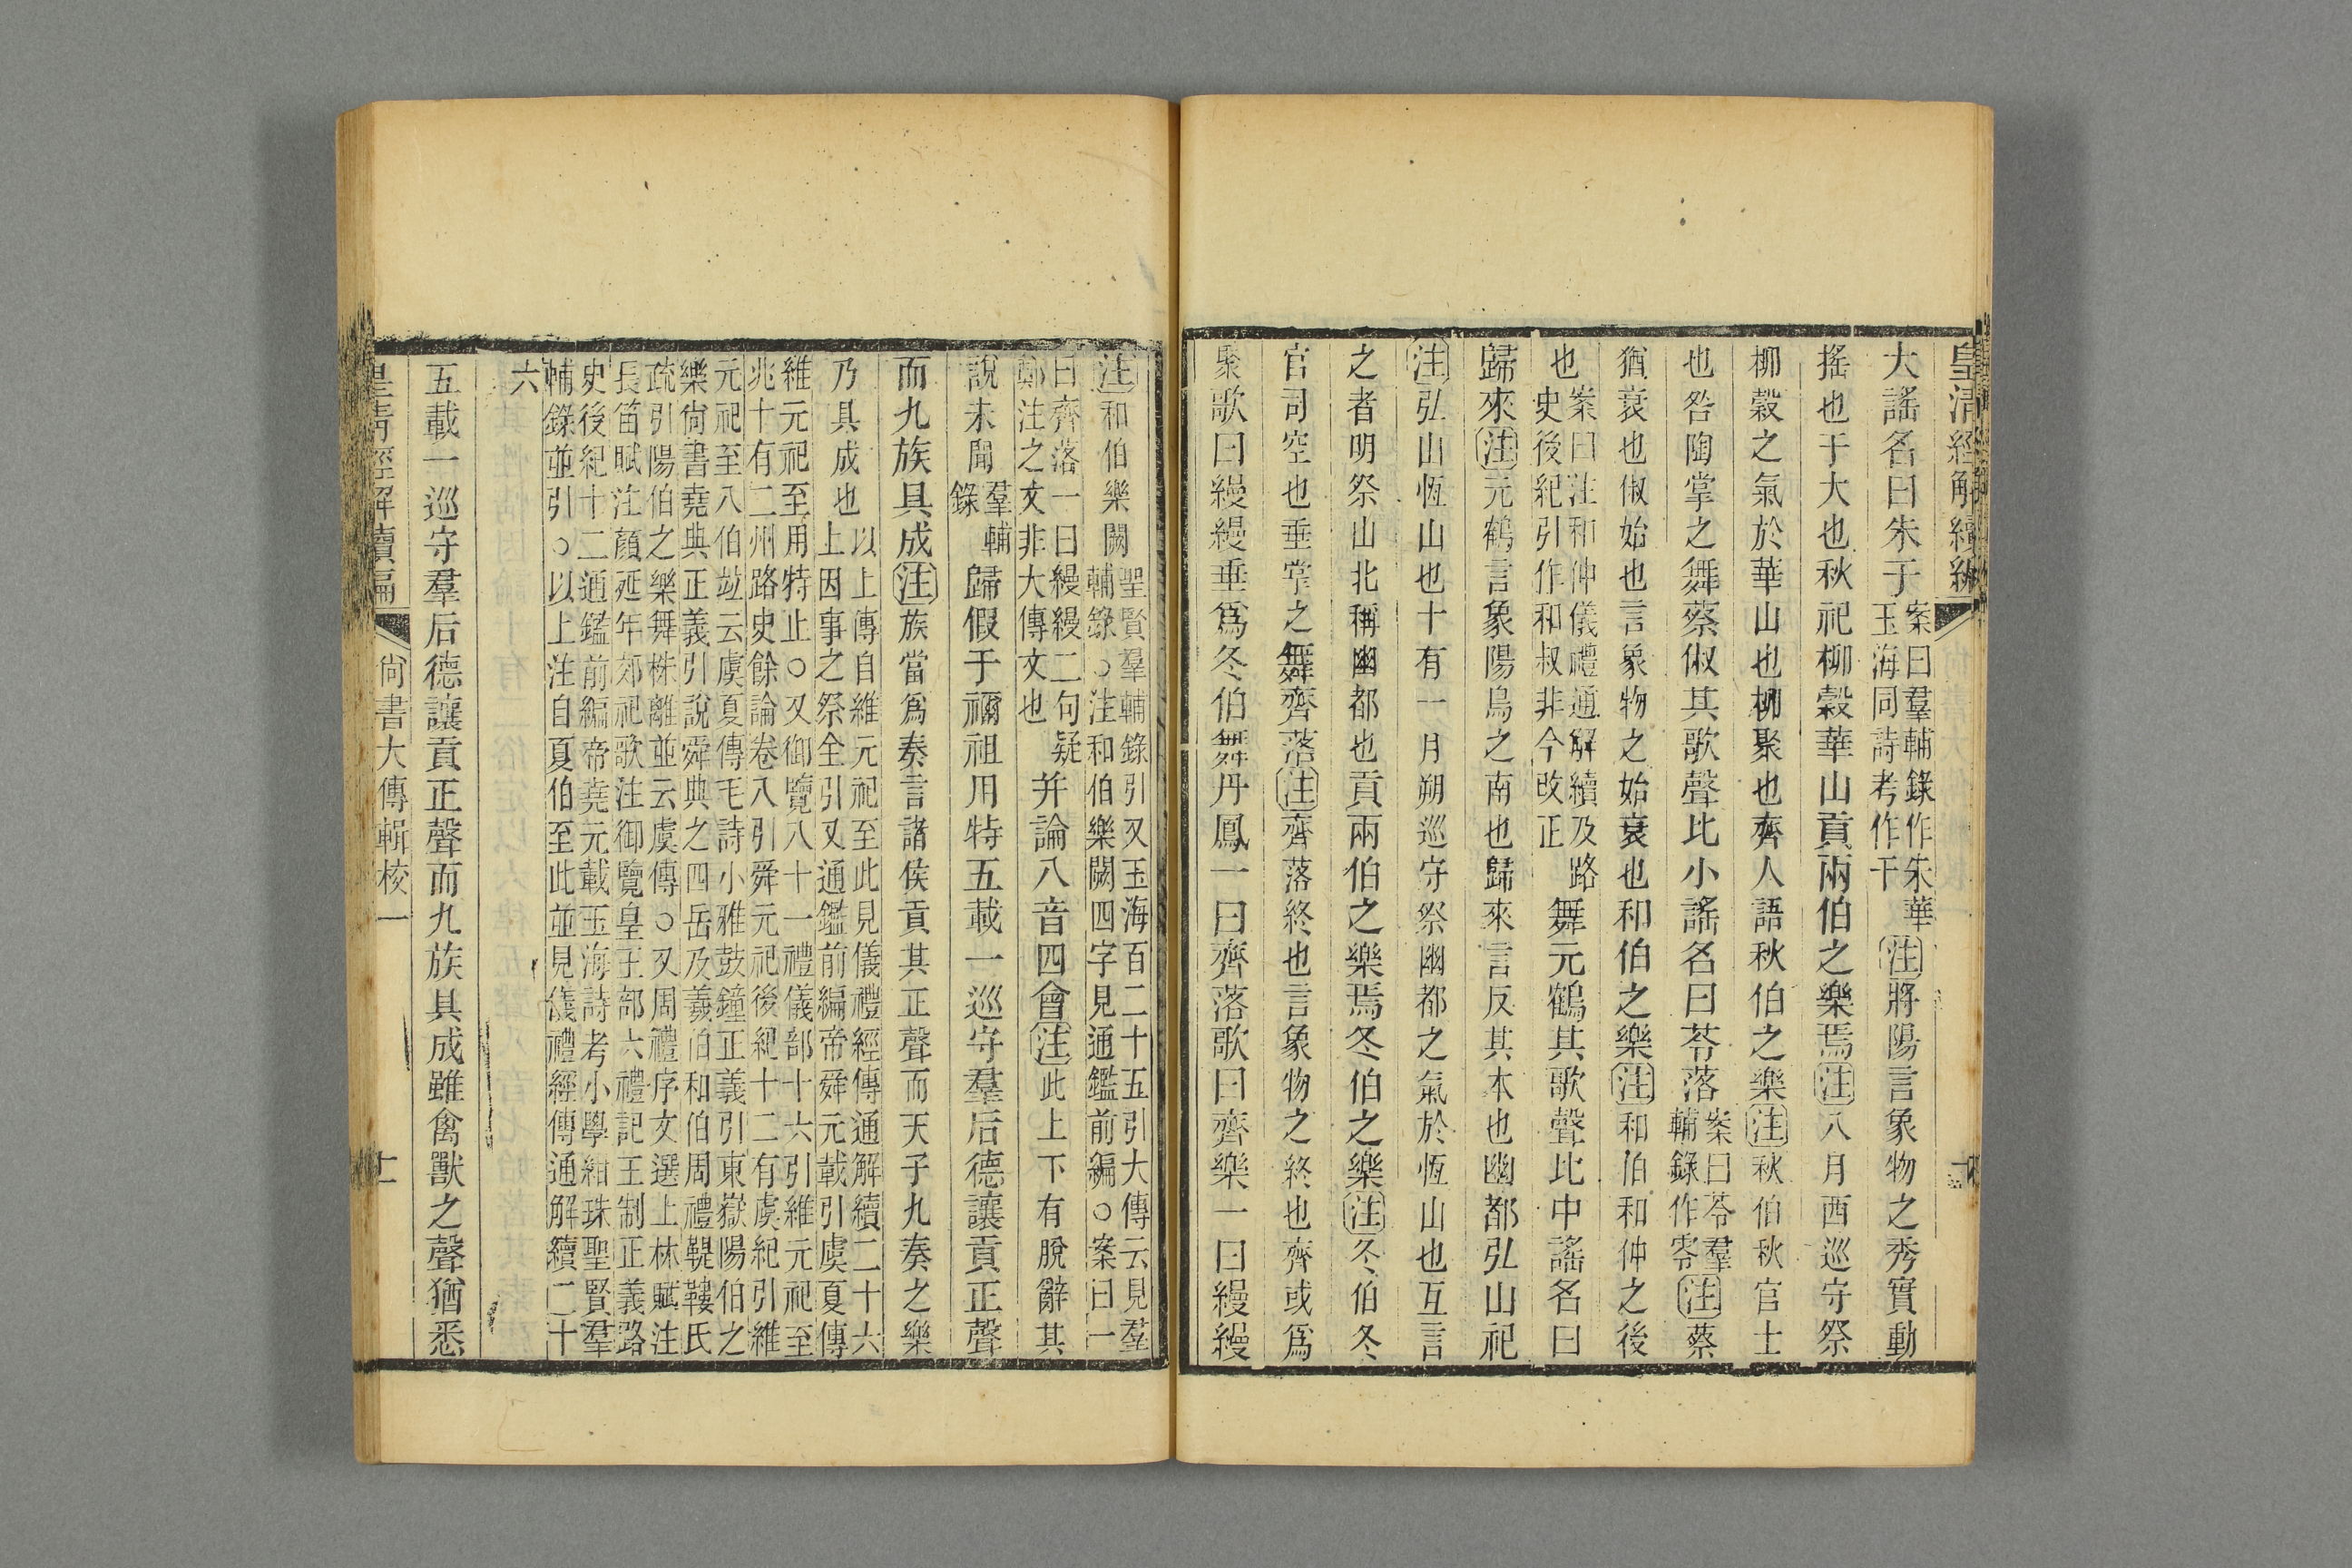 皇清經解續編
大謠名曰朱于
案曰羣輔錄作朱華
玉海同詩考作干
注將陽言象物之秀實動
搖也于大也秋祀柳榖華山貢兩伯之樂焉注八月西巡守祭
柳榖之氣於華山也柳聚也齊人語秋伯之樂注秋伯秋官士
也咎陶掌之舞蔡俶其歌聲比小謠名曰苓落
案曰苓羣
輔錄作零
注蔡
猶衰也俶始也言象物之始衰也和伯之樂注和伯和仲之後
也
案曰注和仲儀禮通解續及路
史後紀引作和叔非今攺正
舞元鶴其歌聲比中謠名曰
歸來注元鶴言象陽鳥之南也歸來言反其本也幽都弘山祀
注弘山恆山也十有一月朔巡守祭幽都之氣於恆山也互言
之者明祭山北稱幽都也貢兩伯之樂焉冬伯之樂注冬伯冬
官司空也垂掌之舞齊落注齊落終也言象物之終也齊或爲
聚歌曰縵縵垂爲冬伯舞丹鳳一曰齊落歌曰齊樂一曰縵縵
注和伯樂闕
聖賢羣輔錄引又玉海百二十五引大傳云見羣
輔錄○注和伯樂闕四字見通鑑前編○案曰一
曰齊落一曰縵縵二句疑
鄭注之文非大傳文也
并論八音四會注此上下有脫辭其
說未聞
羣輔
錄
歸假于禰祖用特五載一巡守羣后德讓貢正聲
而九族具成注族當爲奏言諸侯貢其正聲而天子九奏之樂
乃具成也
以上傳自維元祀至此見儀禮經傳通解續二十六
上因事之祭全引又通鑑前編帝舜元載引虞夏傳
維元祀至用特止○又御覽八十一禮儀部十六引維元祀至
兆十有二州路史餘論卷八引舜元祀後紀十二有虞紀引維
元祀至八伯竝云虞夏傳毛詩小雅鼓鐘正義引東嶽陽伯之
樂尙書堯典正義引說舜典之四岳及羲伯和伯周禮鞮鞻氏
疏引陽伯之樂舞株離並云虞傳○又周禮序文選上林賦注
長笛賦注顏延年郊祀歌注御覽皇王部六禮記王制正義路
史後紀十二通鑑前編帝堯元載玉海詩考小學紺珠聖賢羣
輔錄並引○以上注自夏伯至此並見儀禮經傳通解續二十
六
五載一巡守羣后德讓貢正聲而九族具成雖禽獸之聲猶悉
皇清經解續編
尙書大傳輯校一